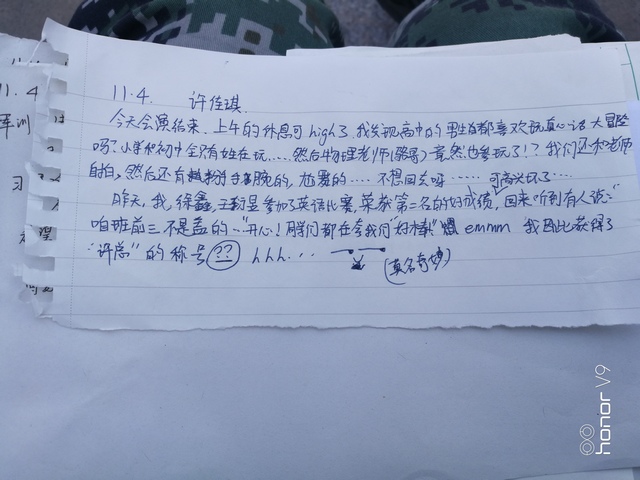 11.4. 许佳琪
今天会演结束. 上午的休息可high了. 我发现高中的男生都喜欢玩真心话大冒险
吗? 小学和初中全只有姓在玩..... 然后物理老师(骆哥) 竟然也参玩了!? 我们还和老师
自拍, 然后还有掰手腕的, 尬舞的.... 不想回去呀..... 可高兴坏了...
昨天, 我, 徐鑫, 王 昱参加了英语比赛, 荣获第二名的好成绩, 回来"听到有人说:"
咱班前三不是盖的.."开心! 同学们都在夸我们"好棒" emmm 我因此获得了
"许总"的称号 ?? hhh... (莫名奇妙)
11.4
军训
习
honor V9